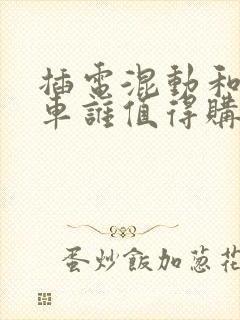 插電混動和
車誰值得購
蛋炒飯加蔥花